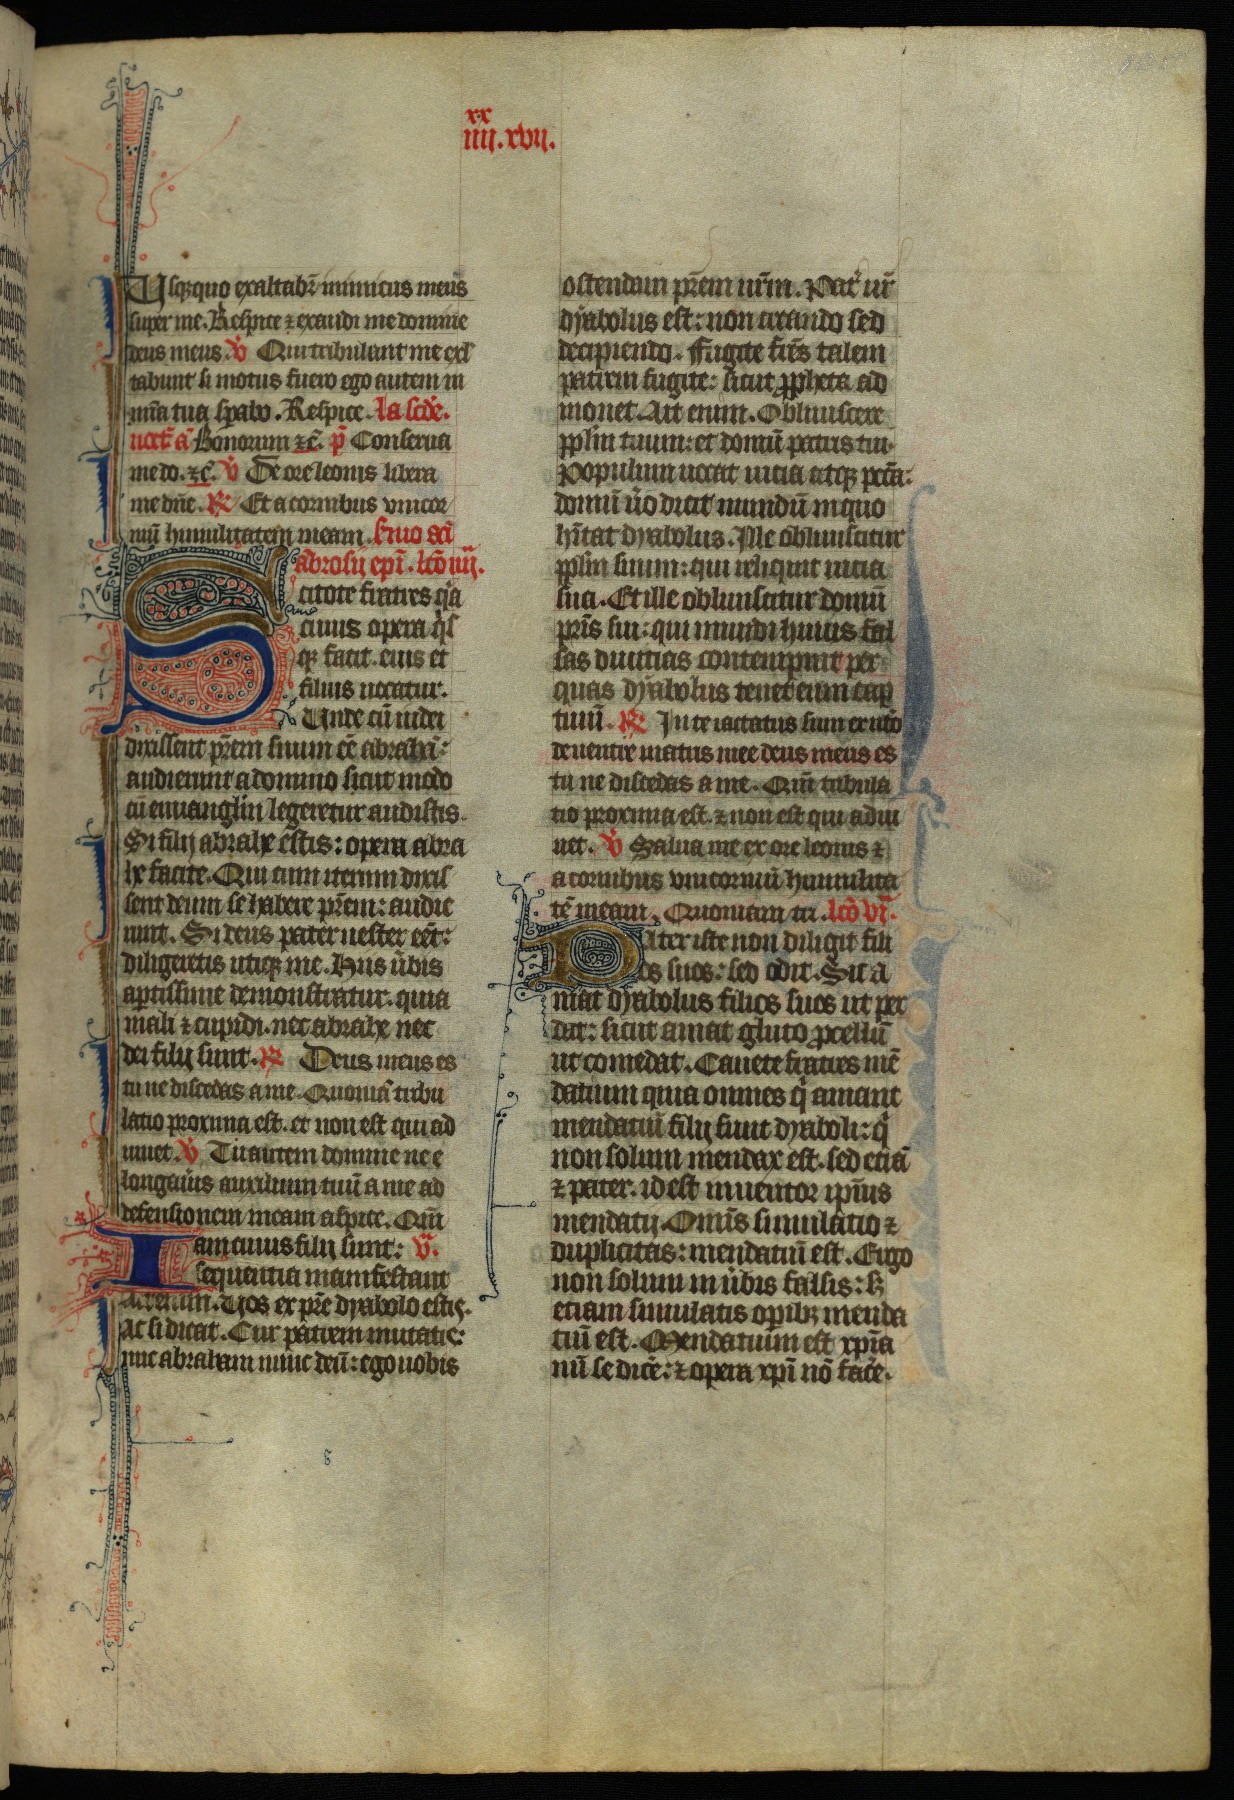 xx
iiij. xvij.
Usq;quo exaltabr̄ inimicus meus
super me. Respice ⁊ exaudi me domine
deus meus. V̇ Qui tribulant me exl
tabunt si motus fuero ego autem in
mīa tua spabo. Respice. Ia scdē.
noct̄ a᷑ Bonorum ⁊c̄. p̄ Conserua
me do. ⁊c̄. V̇ De ore leonis libera
me dn̄e. R̷ Et a cornibus vnicor
niū humilitatem meam. Sermo sc̄i
abrosij epī. lcō iiij.
Scitote fratres q̇a
cuius opera q̇s
q; facit. eius et
filius uocatur.
Unde cū iudei
dixissent pr̄em suum eē abrahā:
audierunt a domino sicut modo
cū euuanglīu legeretur audistis.
Si filij abrahe estis: opera abra
he facite. Qui cum iterum dixis
sent deum se habere pr̄em: audie
runt. Si deus pater uester eēt:
diligeretis utiq; me. Hiis ūbis
aptissime demonstratur. quia
mali ⁊ cupidi. nec abrahe nec
dei filij sunt. R̷ Deus meus es
tu ne discedas a me. Quoniā tribu
latio proxima est. et non est qui ad
iuuet. V̇ Tu autem domine ne e
longaūis auxilium tuū a me ad
defensionem meam aspice. Qm̄
Iam cuius filij sunt: v̄.
sequentia manifestant
dicentium. Uos ex pr̄e dyabolo estis.
Ac si dicat. Cur patrem mutatis:
nūc abraham nunc deū: ego uobis
ostendam pr̄em ur̄m. Pat̄ ur̄
dyabolus est: non creando sed
decipiendo. Fugite fr̄es talem
patrem fugite: sicut ꝓpheta ad
monet. Ait enim. Obliuiscere
pplm̄ tuum: et domū patris tui.
Populum uocat uicia atq; pctā:
domū ūo dicit mundū in quo
hītat dyabolus. Ille obliuiscitur
pplm̄ suum: qui reliquit uicia
sua. Et ille obliuiscitur domū
pr̄is sui: qui mundi huius fal
sas diuitias contempnit per
quas dyabolus tenet eum cap
tiuū. R̷ In te iactatus sum ex utō
de uentre matris mee deus meus es
tu ne discedas a me. Qm̄ tribula
tio proxima est. ⁊ non est qui adiu
uet. V̇ Salua me ex ore leonis ⁊
a cornibus vnicorniū humilita
tē meam. Quoniam tri. lcō vj̄.
Pater iste non diligit fili
os suos: sed odit. Sic a
mat dyabolus filios suos ut per
dat: sicut amat gluto ꝓcellū
ut comedat. Cauete fratres mē
datium quia omnes q̇ amant
mendatiū filij sunt dyaboli: q̇
non solum mendax est. sed etiā
⁊ pater. id est inuentor ip̄ius
mendatij. Om̄is simulatio ⁊
duplicitas: mendatiū est. Ergo
non solum in ūbis falsis: s;
etiam simulatis opib; menda
tiū est. Mendatium est xp̄ia
nū se dicē: ⁊ opera xp̄i nō facē.